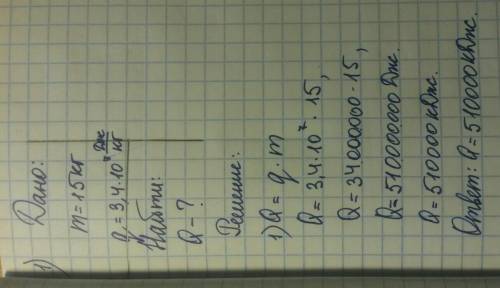 1) Дано:
m = 15 кг
q = 3,4 · 10⁷ Дж/кг
Найти:
Q - ?
Решение:
1) Q = q · m
Q = 3,4 · 10⁷ · 15,
Q = 34000000 · 15,
Q = 510000000 Дж.
Q = 510000 кДж.
Ответ: Q = 510000 кДж.